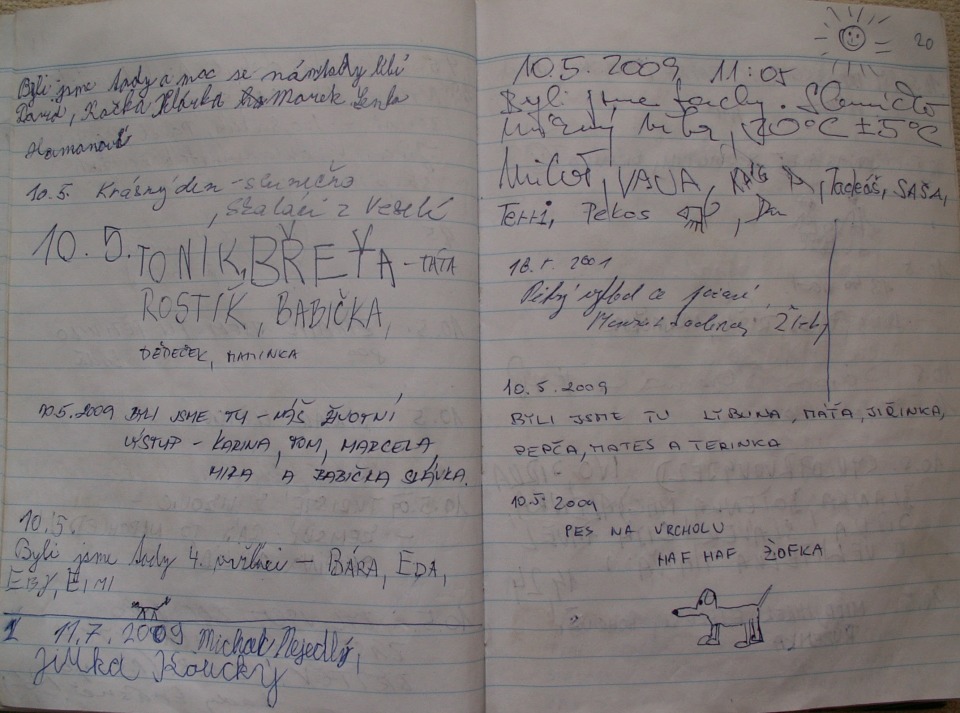 Byli jsme tady a moc se nám tady líbí
David, Katka Marek Lenka
10.5. Krásný den - slunečno
, Szaláci z Veselí
10.5. TONÍK, BŘEŤA - TÁTA
ROSTÍK, BABIČKA,
DĚDEČEK, MAMINKA
10.5.2009 BYLI JSME TU - NÁŠ ŽIVOTNÍ
VÝSTUP - KARINA, TOM, MARCELA,
MIRA A BABIČKA SLÁVKA.
10.5.
Byli jsme tady 4. - BÁRA, EDA,
EBY, EIMI
11.7.2009 Michal Nejedlý,
Jitka Koucký
20
10.5.2009, 11:05
Byli jsme tady. Sluníčko
70°C ±5°C
Miloš, VAŠA, Tadeáš, SAŠA,
Terri, Pekos
18.5. 2001
Pěkný
10.5.2009
BYLI JSME TU LIBUNA, MÁŤA, JIŘINKA,
PEPČA, MATES A TERINKA
10.5. 2009
PES NA VRCHOLU
HAF HAF ŽOFKA